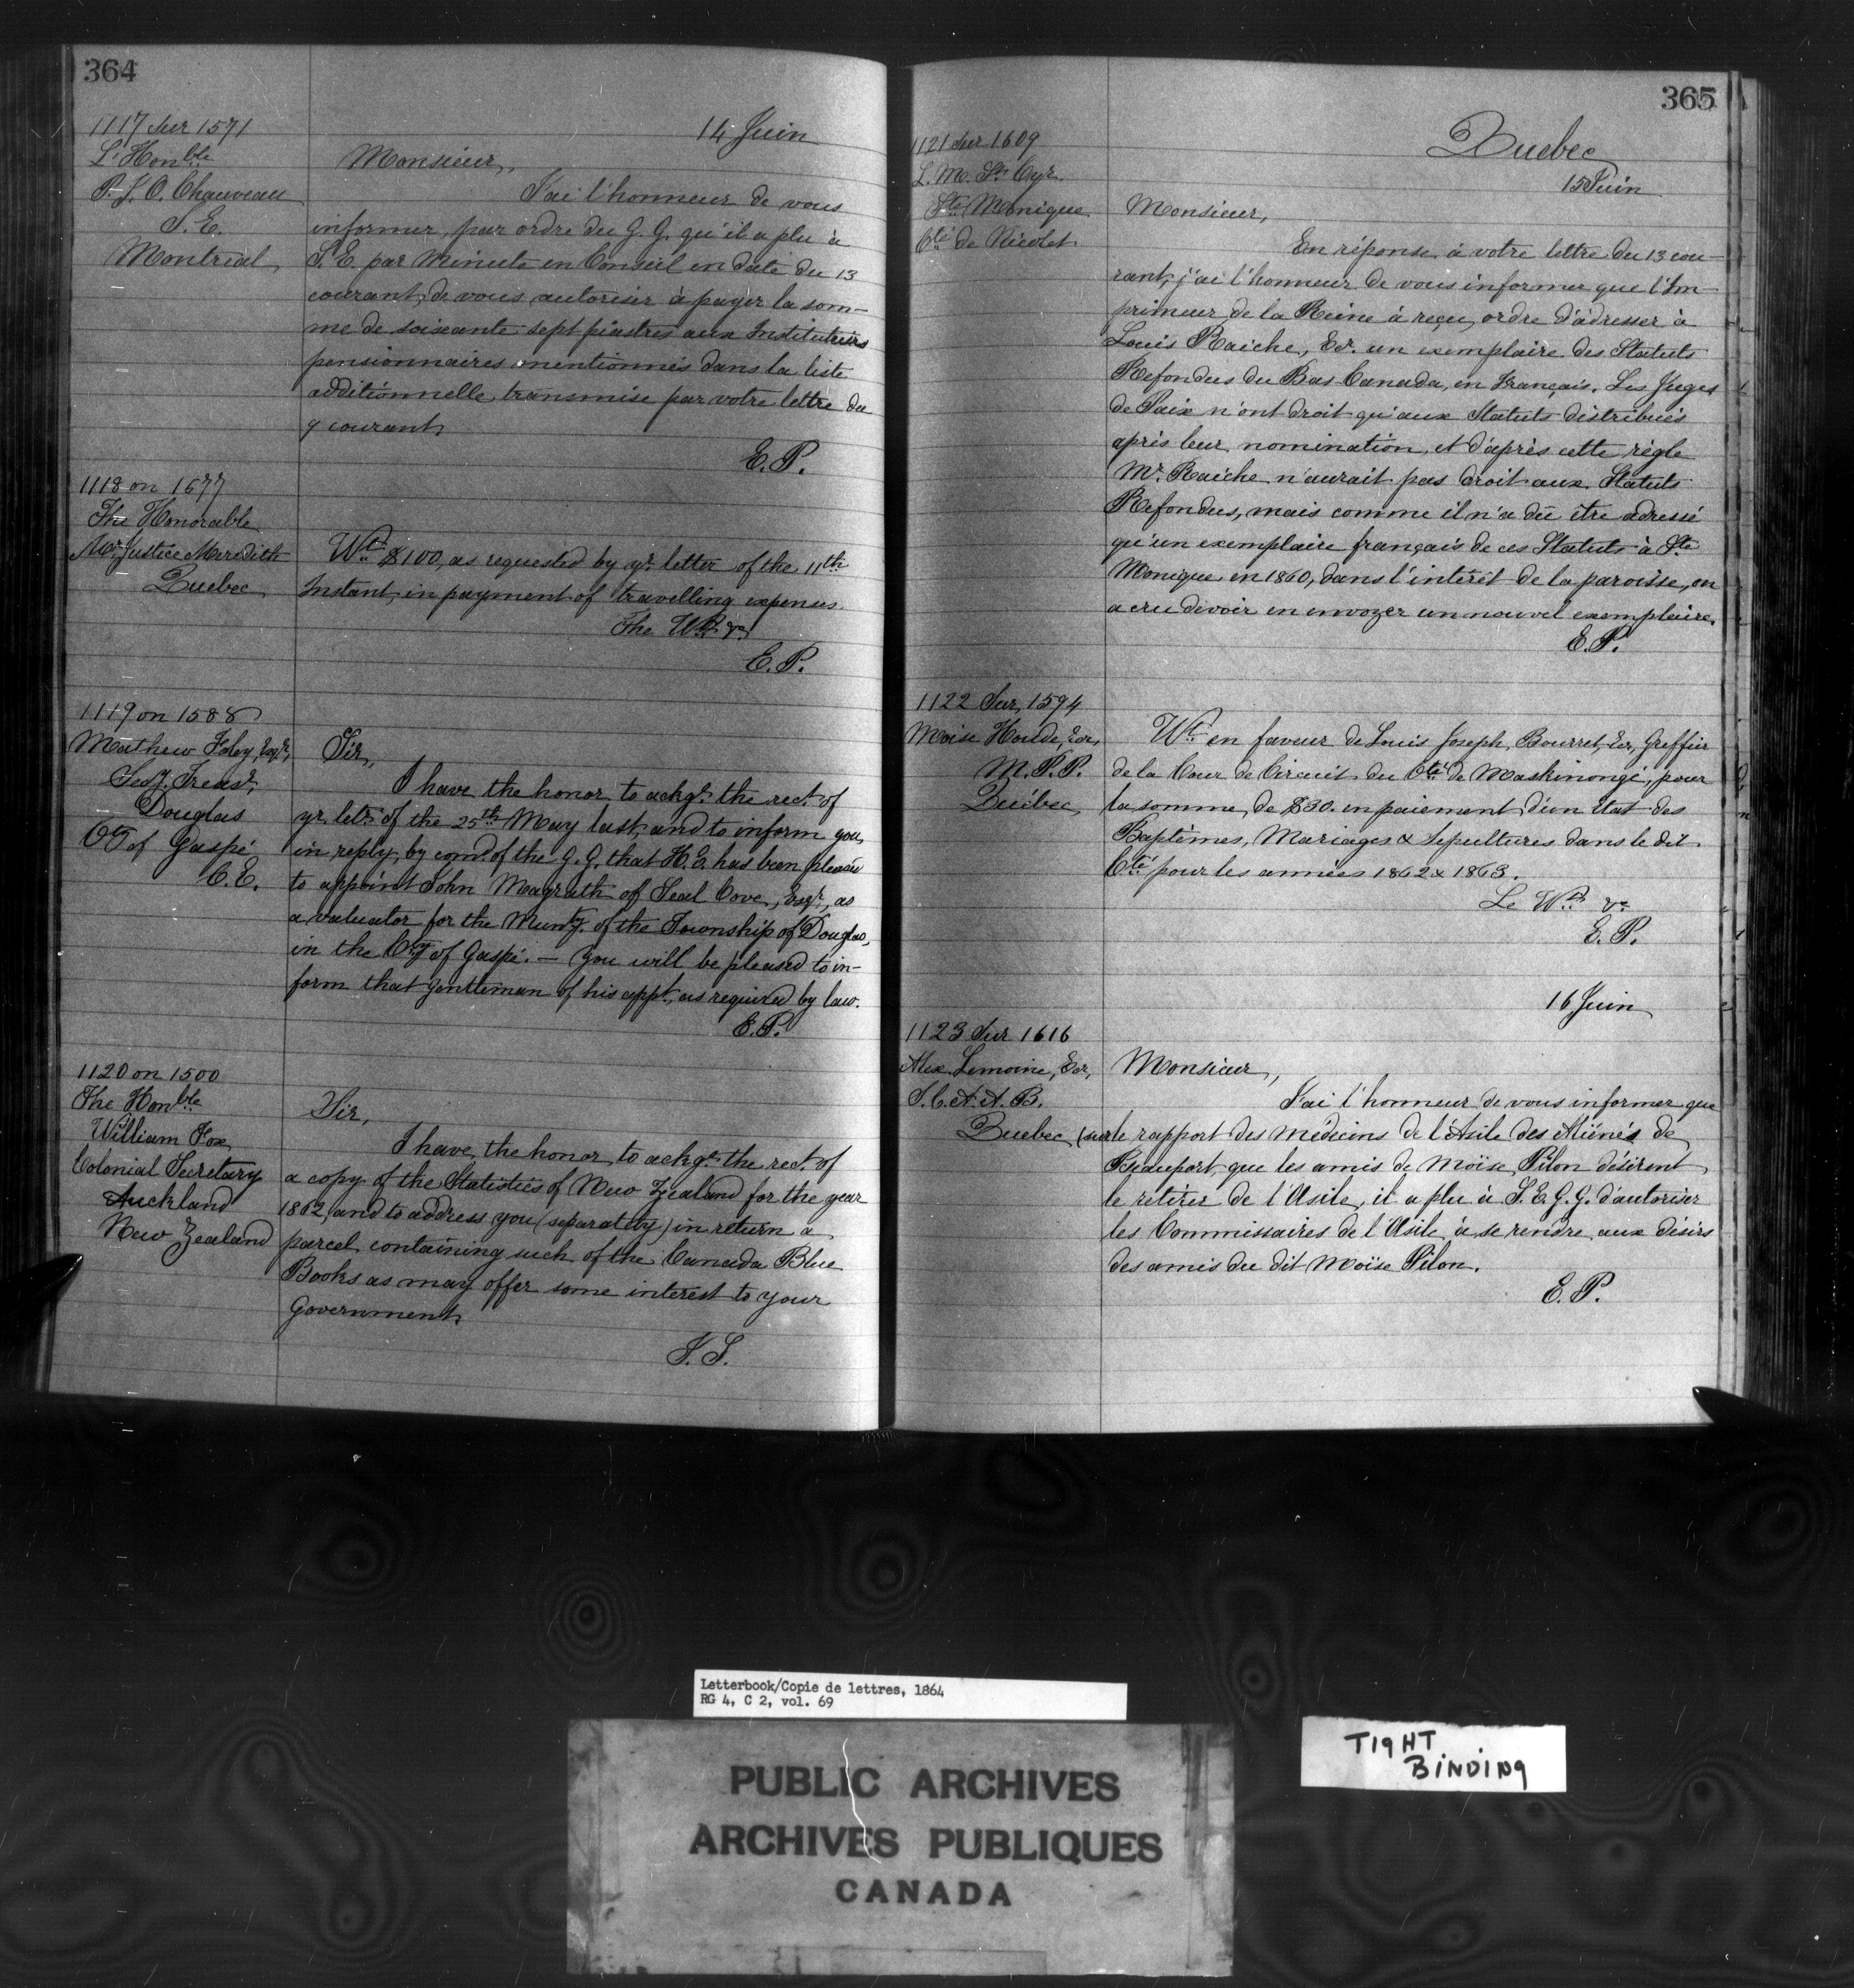 364
14 Juin
1117 Sur 1571
L'Honble
P. J. O. Chauveau
S. E.
Montreal
Monsieur,
J'ai l'honneur de vous
informer, par ordre du G. G. qu'il a plu à
S. E. par Minute en Conseil en date du 13
courant, de vous autoriser à payer la som-
me de soixante-sept piastres aux Instituteurs
pensionnaires mentionnés dans la liste
additionnelle, transmise par votre lettre du
9 courant,
E. P.
1118 on 1577
The Honorable
Mr. Justice Meredith
Quebec
Wt. $100, as requested by yr. letter of the 11th
Instant, in payment of travelling expenses.
The Wt. &c.
E. P.
1119 on 1588
Mathew Foley, Esqr.,
Secy. Treasr.
Douglas
Cty of Gaspé
C. E.
Sir,
I have the honor to ackge. the rect. of
yr. letr. of the 25th May last, and to inform you,
in reply, by comd. of the G. G. that H. E. has been pleased
to appoint John Magrath of Seal Cove, Esqr., as
a valuator for the Munty. of the Township of Douglas,
in the Cty of Gaspé. — You will be pleased to in-
form that gentleman of his appt, as required by law.
E. P.
1120 on 1500
The Honble
William Fox
Colonial Secretary
Auckland
New Zealand
Sir,
I have the honor to ackge. the rect. of
a copy of the Statistics of New Zealand for the year
1862, and to address you (separately) in return a
parcel containing such of the Canada Blue
Books as may offer some interest to your
Government,
365
Quebec
15 Juin
1121 Sur 1609
L. M. St. Cyr.
Ste. Monique
Cté. de Nicolet
Monsieur,
En réponse à votre lettre du 13 cou-
rant, j'ai l'honneur de vous informer que l'Im-
primeur de la Reine à reçu ordre d'adresser à
Louis Raiche, Ecr. un exemplaire des Statuts
Refondus du Bas-Canada, en Français. Les Juges
de Paix n'ont droit qu'aux Statuts distribués
après leur nomination, et d'après cette règle
Mr. Raiche n'aurait pas droit aux Statuts
Refondus, mais comme il n'a dû être adressé
qu'un exemplaire français de ces Statuts à Ste
Monique en 1860, dans l'intérêt de la paroisse, on
a cru devoir en envoyer un nouvel exemplaire.
E. P.
1122 Sur 1594
Moise Houde, Ecr,
M. P. P.
Québec
Wt. en faveur de Louis Joseph Bourret, Ecr, Greffier
de la Cour de Circuit du Cté. de Maskinongé, pour
la somme de $30. en paiement d'un Etat des
Baptêmes, Mariages & Sepultures dans le dit
Cté pour les années 1862 & 1863.
Le Wt. &c.
E. P.
16 Juin
1123 Sur 1616
Alex. Lemoine, Ecr,
S. C. A. A. B.
Quebec
Monsieur,
J'ai l'honneur de vous informer que
(sur le rapport des médecins de l'Asile des Aliénés de
Beauport, que les amis de Moïse Pilon désirent
le retirer de l'Asile, il a plu à S. E. G. G. d'autoriser
les Commissaires de l'Asile à se rendre aux désirs
des amis du dit Moïse Pilon.
E. P.
Letterbook/Copie de lettres, 1864
RG 4, C 2, vol. 69
TIGHT
BINDING
PUBLIC ARCHIVES
ARCHIVES PUBLIQUES
CANADA